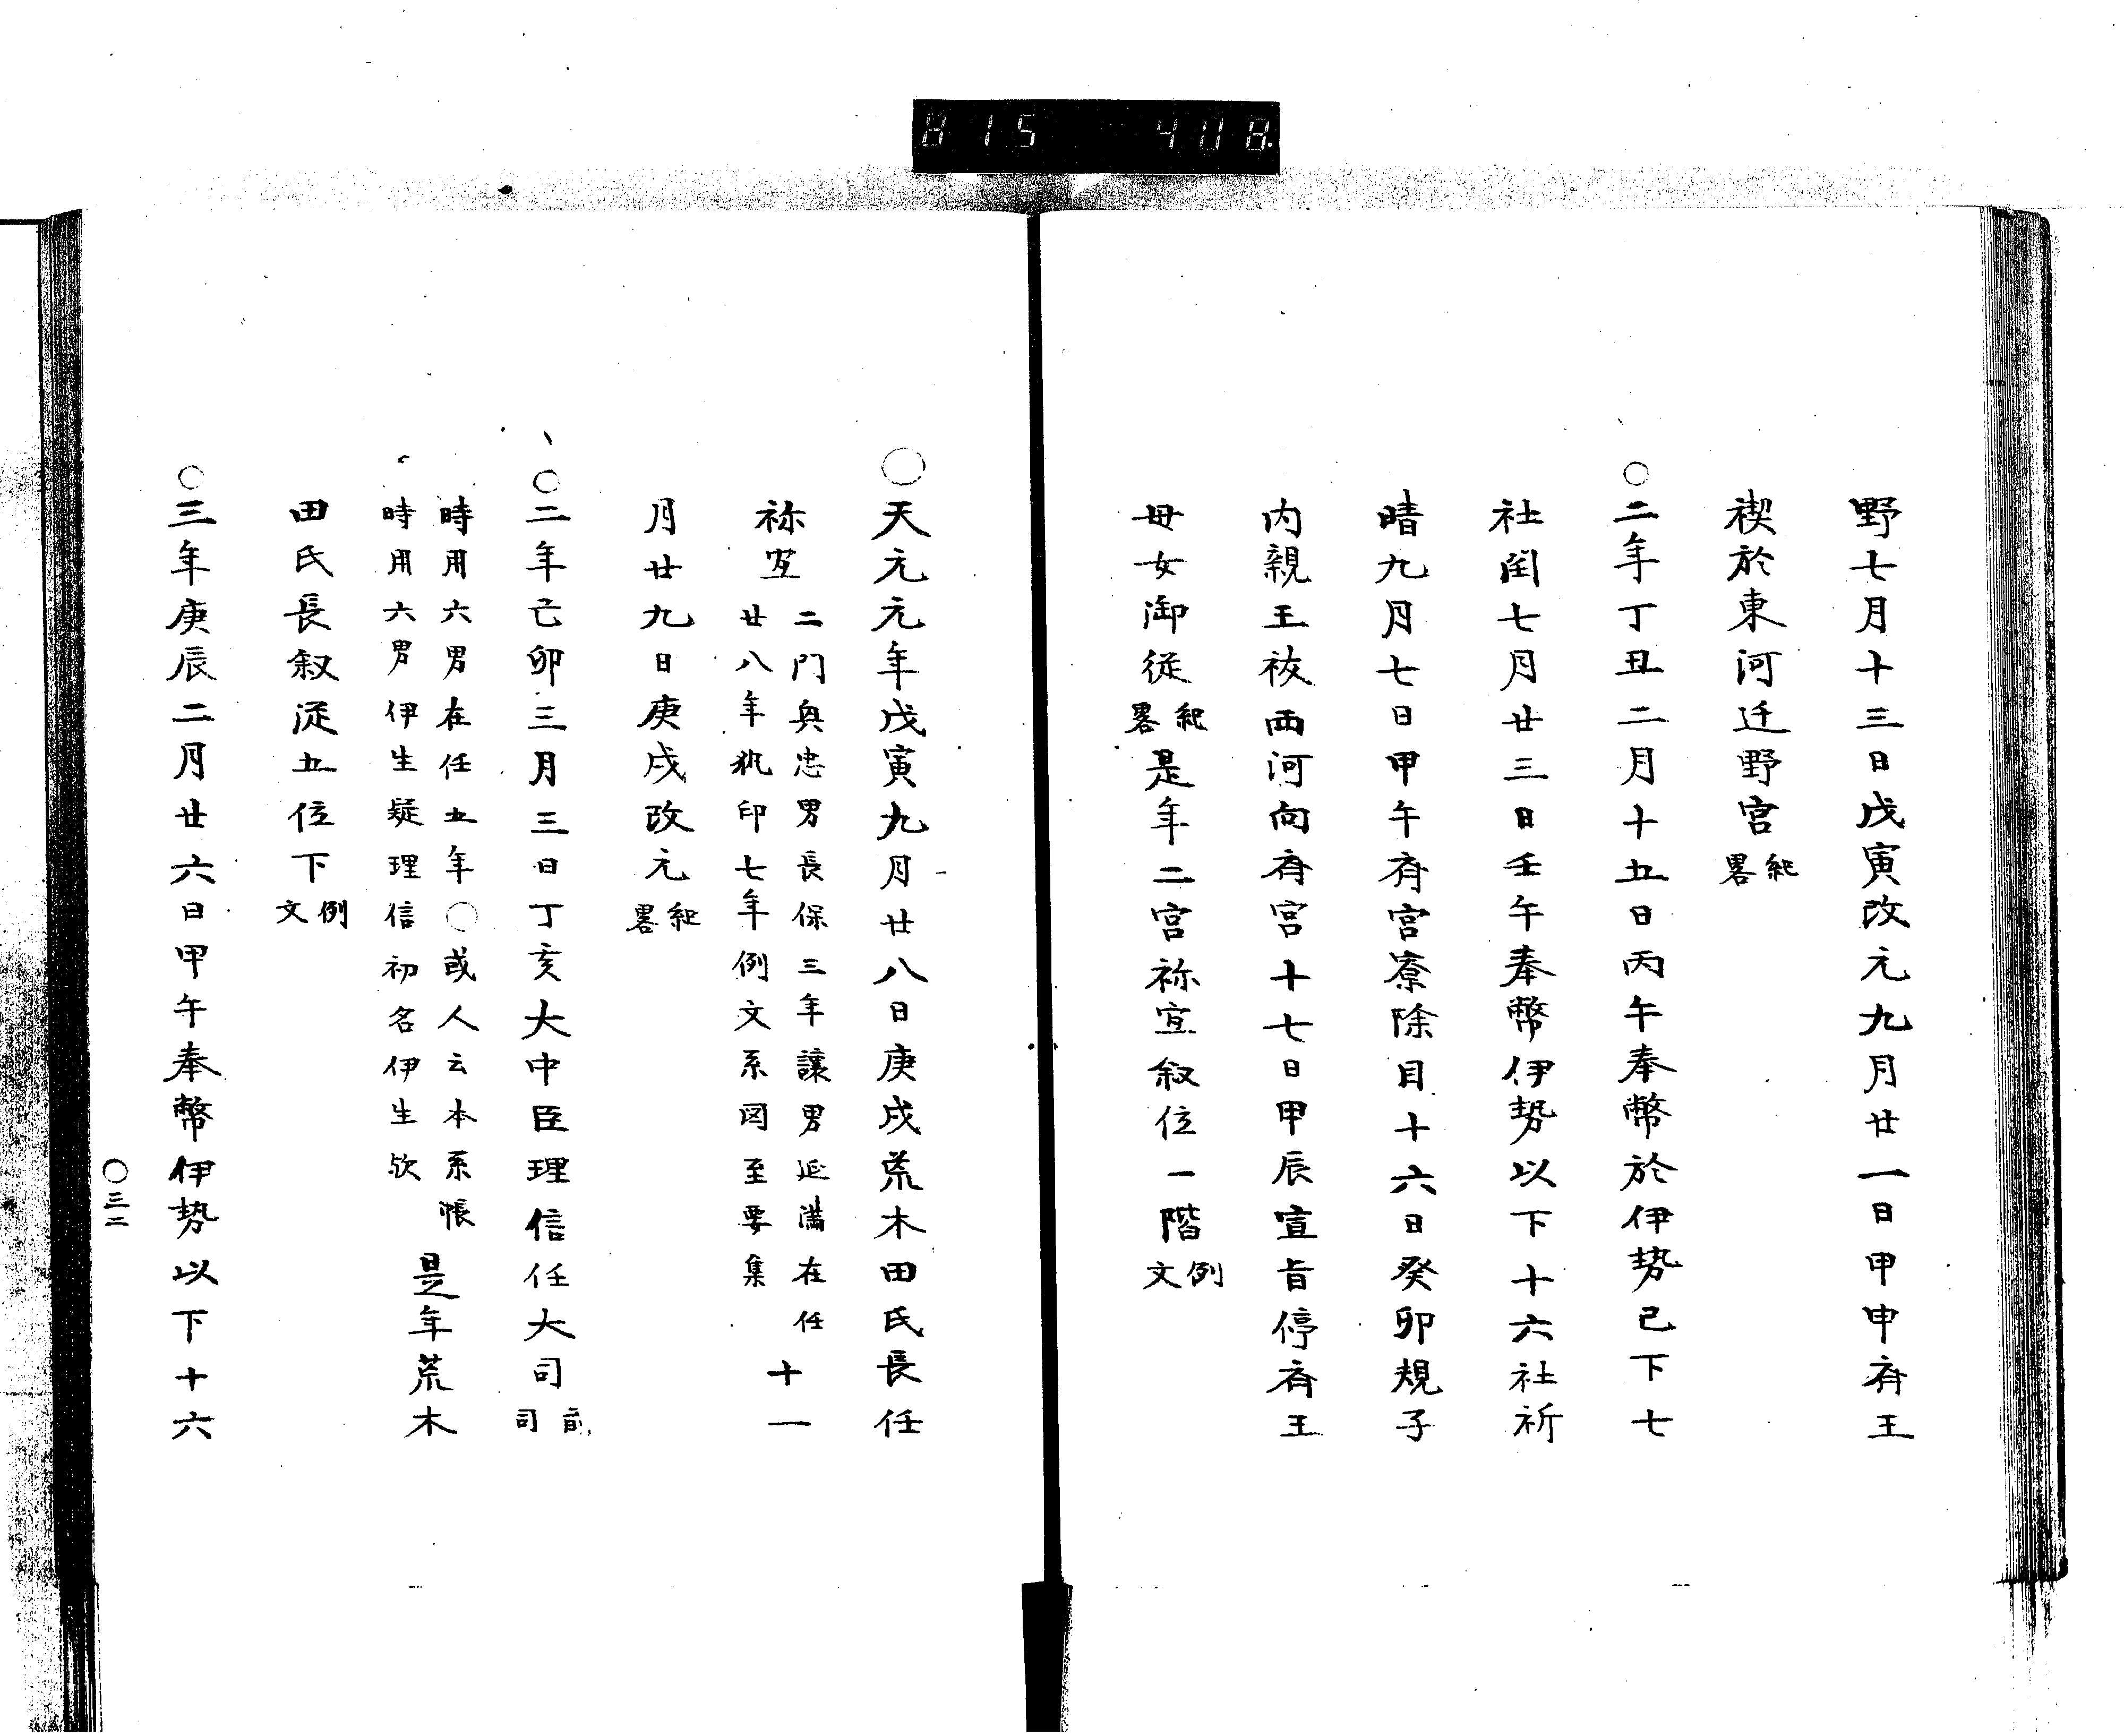 815 408
野七月十三日戊寅改元九月廿一日甲申斎王
禊於東河迁野宮紀畧
○二年丁丑二月十五日丙午奉幣於伊勢已下七
社閏七月廿三日壬午奉幣伊勢以下十六社祈
晴九月七日甲午斎宮寮除目十六日癸卯規子
内親王祓西河向斎宮十七日甲辰宣旨停斎王
母女御従紀畧是年二宮祢宜叙位一階例文
○天元元年戊寅九月廿八日庚戌荒木田氏長任
祢宜二門興忠男長保三年譲男延満在任
廿八年執印七年例文系図至要集十一
月廿九日庚戌改元紀畧
○二年己卯三月三日丁亥大中臣理信任大司前司
時用六男在任五年○或人云本系帳
時用六男伊生疑理信初名伊生欤是年荒木
田氏長叙従五位下例文
○三年庚辰二月廿六日甲午奉幣伊勢以下十六
○三二